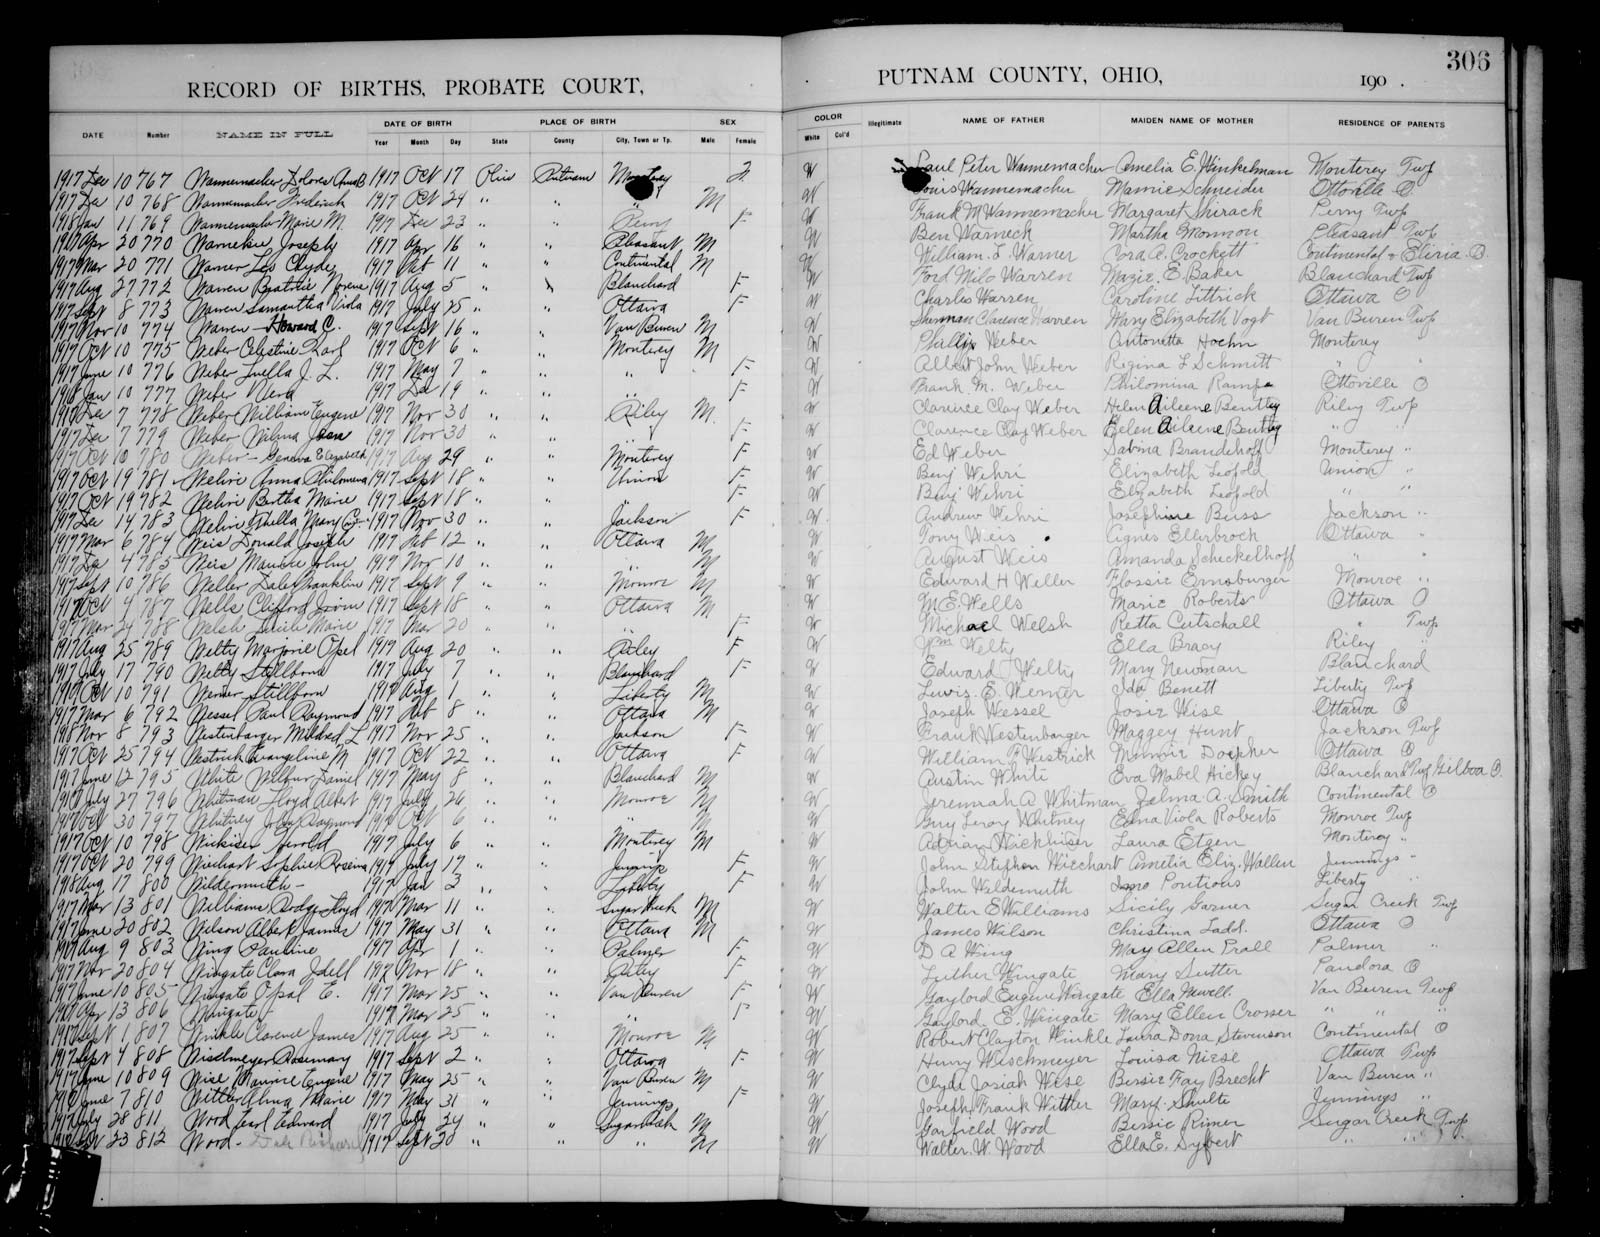 306
RECORD OF BIRTHS, PROBATE COURT, PUTNAM COUNTY, OHIO, 190 .
DATE Number NAME IN FULL DATE OF BIRTH Year Month Day PLACE OF BIRTH State County City, Town or Tp. SEX Male Female COLOR White Col'd Illegitimate NAME OF FATHER MAIDEN NAME OF MOTHER RESIDENCE OF PARENTS
1917 Dec 10 767 Wannemacher Dolores 1917 Oct 17 Ohio Putnam Monterey F. W Paul Peter Wannemacher Amelia E. Winkelman Monterey Twp
1917 Dec 10 768 Wannemacher Frederick 1917 Oct 24 " " " M W Louis Wannemacher Mamie Schneider Ottoville O
1918 Jan 11 769 Wannemacher Marie M. 1917 Dec 23 " " Perry F W Frank M Wannemacher Margaret Shirack Perry Twp
1917 Apr 20 770 Warnekie Joseph 1917 Apr 16 " " Pleasant M W Ben Warneck Martha Mormon Pleasant Twp
1917 Mar 20 771 Warner Leo Clyde 1917 Feb 11 " " Continental M W William. L. Warner Cora A. Crockett Continental & Elyria O.
1917 Aug 27 772 Warren Beatrice Norene 1917 Aug 5 " " Blanchard F W Ford Milo Warren Mazie. E. Baker Blanchard Twp
1917 Sept 8 773 Warren Samantha Vida 1917 July 25 " " Ottawa F W Charles Warren Caroline Littrick Ottawa O
1917 Nov 10 774 Warren Howard C. 1917 Sept 16 " " Van Buren M W Sherman Clarence Warren Mary Elizabeth Vogt Van Buren Twp
1917 Oct 10 775 Weber Celestine Karl 1917 Oct 6 " " Monterey M W Phillip Weber Antonetta Hoehn Monterey
1917 June 10 776 Weber Luella J. L. 1917 May 7 " " " F W Albert John Weber Regina L Schmitt " "
1918 Jan 10 777 Weber Vera 1917 Dec 19 " " " F W Frank M. Weber Philomina Rampe Ottoville O
1917 Dec 7 778 Weber William Eugene 1917 Nov 30 " " Riley M. W Clarence Clay Weber Helen Aileene Bentley Riley Twp
1917 Dec 7 779 Weber Wilma Jean 1917 Nov 30 " " F W Clarence Clay Weber Helen Aileene Bentley " "
1917 Oct 10 780 Weber - Geneva Elizabeth 1917 Aug 29 " " Monterey F W Ed Weber Sabina Brandehoff Monterey "
1917 Oct 19 781 Wehri Anna Philomena 1917 Sept 18 " " Union F W Benj Wehri Elizabeth Leopold Union "
1917 Oct 19 782 Wehri Bertha Marie 1917 Sept 18 " " " F W Benj Wehri Elizabeth Leopold " "
1917 Dec 14 783 Wehri Thella Mary 1917 Nov 30 " " Jackson F W Andrew Wehri Josephine Buss Jackson "
1917 Mar 6 784 Weis Donald Joseph 1917 Feb 12 " " Ottawa M W Tony Weis Agnes Ellerbrock Ottawa "
1917 Dec 4 785 Weis Maurice John 1917 Nov 10 " " " M W August Weis Amanda Scheckelhoff " "
1917 Sept 10 786 Weller Dale Franklin 1917 Sept 9 " " Monroe M W Edward H Weller Flossie Ernsburger Monroe "
1917 Oct 4 787 Wells Clifford Irvin 1917 Sept 18 " " Ottawa M W M. E. Wells Marie Roberts Ottawa O
1917 Mar 24 788 Welsh Lucile Marie 1917 Mar 20 " " " F W Michael Welsh Retta Cutschall " Twp
1917 Aug 25 789 Welty Marjorie Opel 1917 Aug 20 " " Riley F W Wm Welty Ella Bracy Riley
1917 July 17 790 Welty Stillborn 1917 July 7 " " Blanchard F W Edward Welty Mary Newman Blanchard
1917 Oct 10 791 Werner Stillborn 1917 Aug 1 " " Liberty M W Lewis. E. Werner Ida Benett Liberty Twp
1917 Mar 6 792 Wessel Paul Raymond 1917 Feb 8 " " Ottawa M W Joseph Wessel Josie Wise Ottawa O
1918 Nov 8 793 Westenbarger Mildred L 1917 Nov 25 " " Jackson F W Frank Westenbarger Maggey Hunt Jackson Twp
1917 Oct 25 794 Westrick Evangeline M 1917 Oct 22 " " Ottawa F W William F Westrick Minnie Doepker Ottawa O
1917 June 12 795 White Wilbur Daniel 1917 May 8 " " Blanchard M W Austin White Eva Mabel Hickey Blanchard Twp Gilboa O.
1917 July 27 796 Whitman Floyd Albert 1917 July 26 " " Monroe M W Jeremiah A Whitman Zelma A. Smith Continental O
1917 Oct 30 797 Whitney John Raymond 1917 Oct 6 " " " M W Guy Leroy Whitney Edna Viola Roberts Monroe Twp
1917 Oct 10 798 Harold 1917 July 6 " " Monterey M W Adrian Laura Etgen Monterey "
1917 Oct 20 799 Wiechart Sophie Rosina 1917 July 17 " " Jennings F W John Stephen Wiechart Amelia Eliz. Wallen Jennings "
1918 Aug 17 800 Wildermuth - 1917 Jan 2 " " Liberty F W John Wildemuth Pontious Liberty "
1917 Mar 13 801 Williams Lloyd 1917 Mar 11 " " Sugar Creek M W Walter E Williams Sicily Garner Sugar Creek Twp
1917 June 20 802 Wilson Albert James 1917 May 31 " " Ottawa M W James Wilson Christina Ladd. Ottawa O
1917 Aug 9 803 Wing Pauline 1917 Apr 1 " " Palmer F W D A Wing May Allen Prall Palmer "
1917 Nov 20 804 Wingate Clara Idell 1917 Nov 18 " " Riley F W Luther Wingate Mary Sutter Pandora O
1917 June 10 805 Wingate Opal E. 1917 Mar 25 " " Van Buren F W Gaylord Eugene Wingate Ella Newell. Van Buren Twp
1917 Apr 13 806 Wingate - 1917 Mar 25 " " F W Gaylord E. Wingate Mary Ellen Crosser " " "
1917 Sept 1 807 Winkle Clarence James 1917 Aug 25 " " Monroe M W Robert Clayton Winkle Laura Dora Stevenson Continental O
1917 Sept 4 808 Wischmeyer Rosemary 1917 Sept 2 " " Ottawa F W Henry Wischmeyer Louisa Niese Ottawa Twp
1917 June 10 809 Wise Maurice Eugene 1917 May 25 " " Van Buren M W Clyde Josiah Wise Bessie Fay Brecht Van Buren "
June 7 810 Wittler Alma Marie 1917 May 31 " " Jennings F W Joseph Frank Wittler Mary. Shulte Jennings "
1917 July 28 811 Wood Earl Edward 1917 July 24 " " Sugar Creek M W Garfield Wood Bessie Rimer Sugar Creek Twp
23 812 Wood - Dale Richard 1917 Sept 20 " " " M W Walter. W. Wood Ella E. Sybert " " "